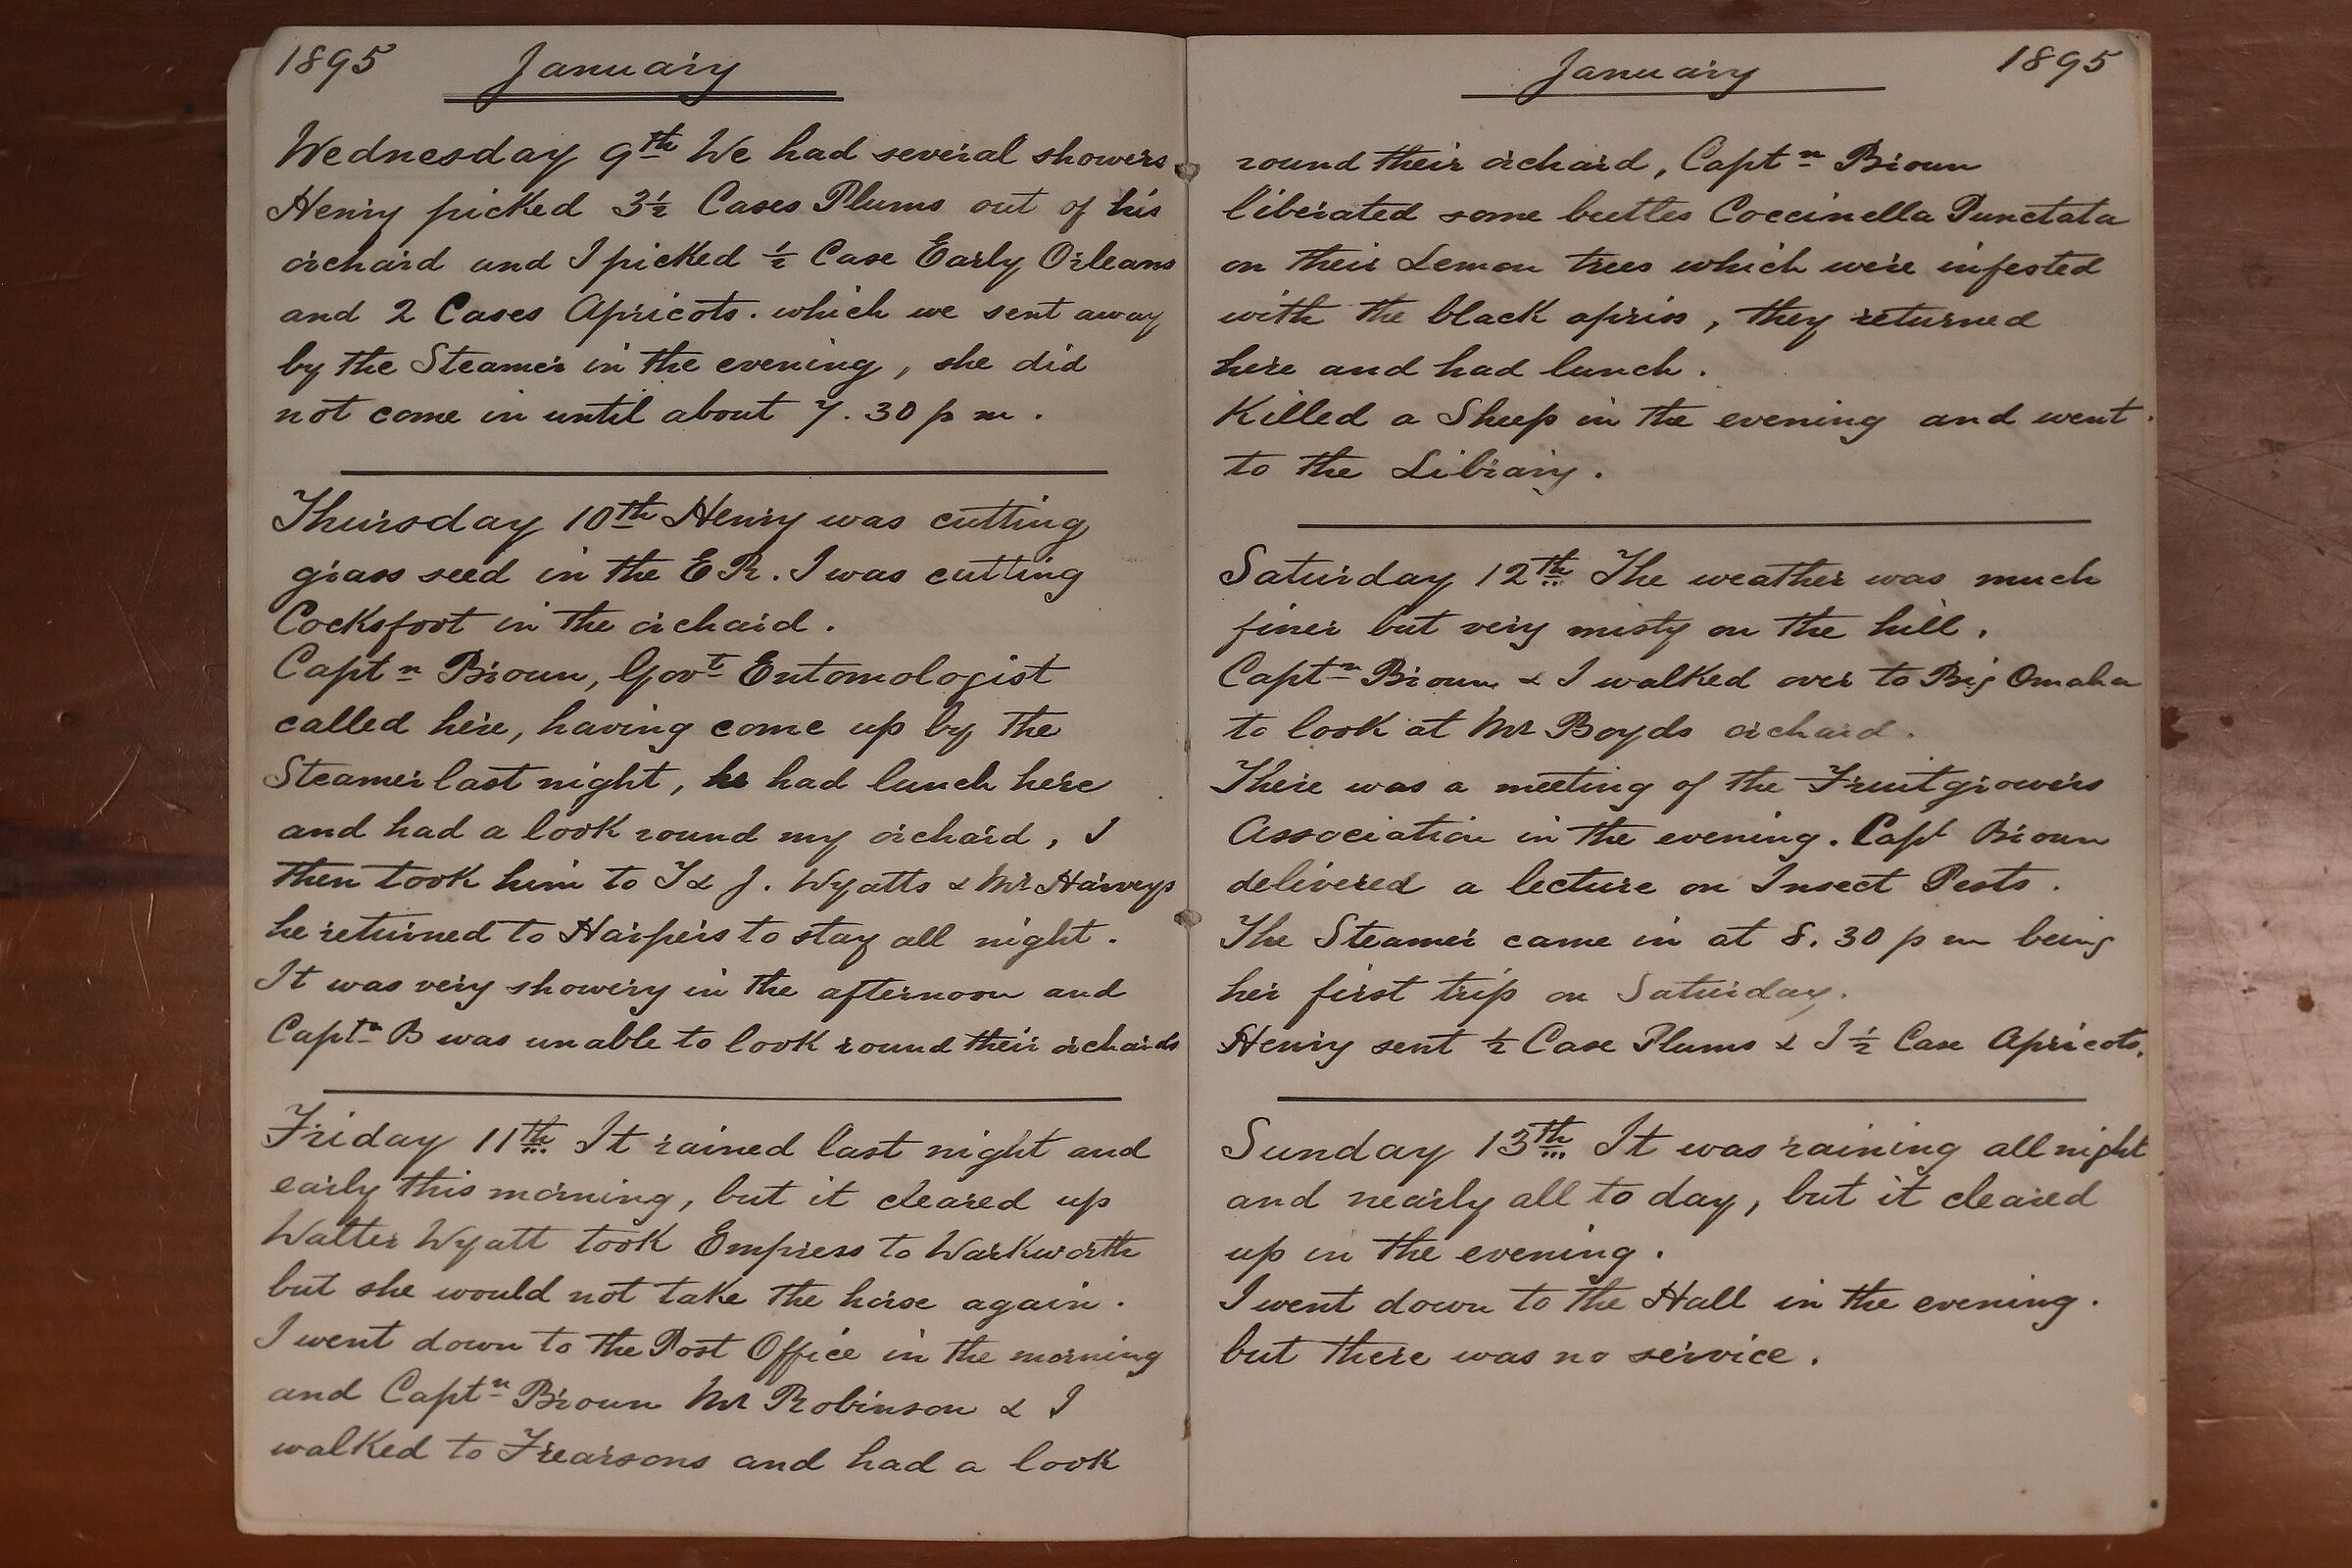 1895 January
Wednesday 9th We had several showers
Henry picked 3½ Cases Plums out of his
orchard and I picked ½ Case Early Orleans
and 2 Cases Apricots. which we sent away
by the Steamer in the evening, she did
not come in until about 7.30 p m.
Thursday 10th Henry was cutting
grass seed in the E R. I was cutting
Cocksfoot in the orchard.
Captn Broun, Govt Entomologist
called here, having come up by the
Steamer last night, he had lunch here
and had a look round my orchard, I
then took him to T & J. Wyatts & Mr Harveys
he returned to Harpers to stay all night.
It was very showery in the afternoon and
Captn B was unable to look round their orchards
Friday 11th It rained last night and
early this morning, but it cleared up
Walter Wyatt took Empress to Warkworth
but she would not take the horse again.
I went down to the Post Office in the morning
and Captn Broun Mr Robinson & I
walked to Frearsons and had a look
January 1895
round their orchard, Captn Broun
liberated some beetles Coccinella Punctata
on their Lemon trees which were infested
with the black apriss, they returned
here and had lunch.
Killed a Sheep in the evening and went
to the Library.
Saturday 12th The weather was much
finer but very misty on the hill.
Captn Broun & I walked over to Big Omaha
to look at Mr Boyds orchard.
There was a meeting of the Fruitgrowers
Association in the evening. Capt Broun
delivered a lecture on Insect Pests.
The Steamer came in at 8.30 p m being
her first trip on Saturday.
Henry sent ½ Case Plums & I ½ Case Apricots.
Sunday 13th It was raining all night
and nearly all to day, but it cleared
up in the evening.
I went down to the Hall in the evening.
but there was no service.